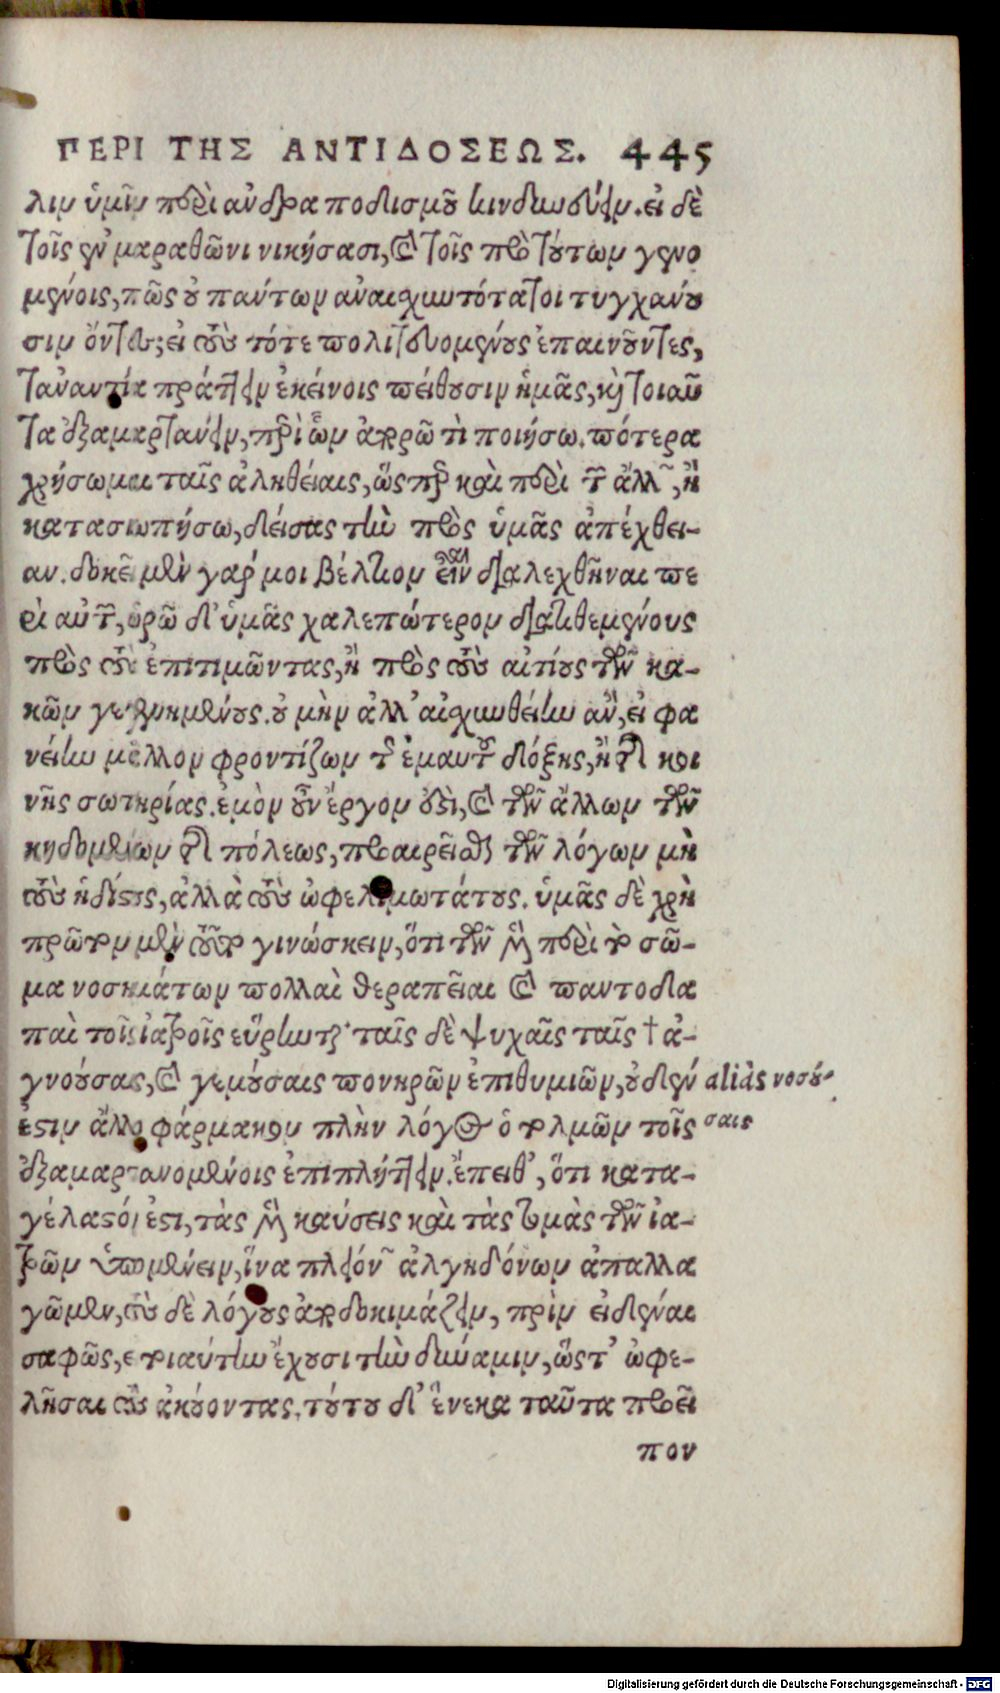 ΠΕΡΙ ΤΗΣ ΑΝΤΙΔΟΣΕΩΣ. 445
λιν ὑμῖν περὶ ἀνδραποδισμοῦ κινδυνεύειν. εἰ δὲ
τοῖς ἐν μαραθῶνι νικήσασι, καὶ τοῖς πρὸ τούτων γενο
μένοις, πῶς οὐ πάντων ἀναισχυντότατοι τυγχάνου
σιν ὄντες; εἰ τοὺς τότε πολιτευομένους ἐπαινοῦντες,
τἀναντία πράττειν ἐκείνοις πείθουσιν ἡμᾶς, καὶ τοιαῦ
τα ἐξαμαρτάνειν, περὶ ὧν ἀπορῶ τὶ ποιήσω. πότερα
χρήσωμαι ταῖς ἀληθείαις, ὥσπερ καὶ περὶ τῶν ἄλλων, ἢ
κατασιωπήσω, δείσας τὴν πρὸς ὑμᾶς ἀπέχθει-
αν. δοκεῖ μὲν γάρ μοι βέλτιον εἶναι διαλεχθῆναι πε
ρὶ αὐτῶν, ὁρῶ δ' ὑμᾶς χαλεπώτερον διατιθεμένους
πρὸς τοὺς ἐπιτιμῶντας, ἢ πρὸς τοὺς αἰτίους τῶν κα-
κῶν γεγενημένους. οὐ μὴν ἀλλ' αἰσχυνθείην ἂν, εἰ φα
νείην μᾶλλον φροντίζων τῆς ἐμαυτοῦ δόξης, ἢ τῆς κοι
νῆς σωτηρίας. ἐμὸν οὖν ἔργον ἐστὶ, καὶ τῶν ἄλλων τῶν
κηδομένων τῆς πόλεως, προαιρεῖσθαι τῶν λόγων μὴ
τοὺς ἡδίστους, ἀλλὰ τοὺς ὠφελιμωτάτους. ὑμᾶς δὲ χρὴ
πρῶτον μὲν τοῦτο γινώσκειν, ὅτι τῶν μὲν περὶ τὸ σῶ-
μα νοσημάτων πολλαὶ θεραπεῖαι καὶ παντοδα
παὶ τοῖς ἰατροῖς εὕρηνται· ταῖς δὲ ψυχαῖς ταῖς † ἀ-
γνούσαις, καὶ γεμούσαις πονηρῶν ἐπιθυμιῶν, οὐδέν
alias νοσού-
σαις
ἐστιν ἄλλο φάρμακον πλὴν λόγος ὁ τολμῶν τοῖς
ἐξαμαρτανομένοις ἐπιπλήττειν. ἔπειθ', ὅτι κατα-
γέλαστόν ἐστι, τὰς μὲν καύσεις καὶ τὰς τομὰς τῶν ἰα-
τρῶν ὑπομένειν, ἵνα πλειόνων ἀλγηδόνων ἀπαλλα
γῶμεν, τοὺς δὲ λόγους ἀποδοκιμάζειν, πρὶν εἰδέναι
σαφῶς, εἰ τοιαύτην ἔχουσι τὴν δύναμιν, ὥστ' ὠφε-
λῆσαι τοὺς ἀκούοντας. τούτου δ' ἕνεκα ταῦτα προεῖ
πον
Digitalisierung gefördert durch die Deutsche Forschungsgemeinschaft - DFG